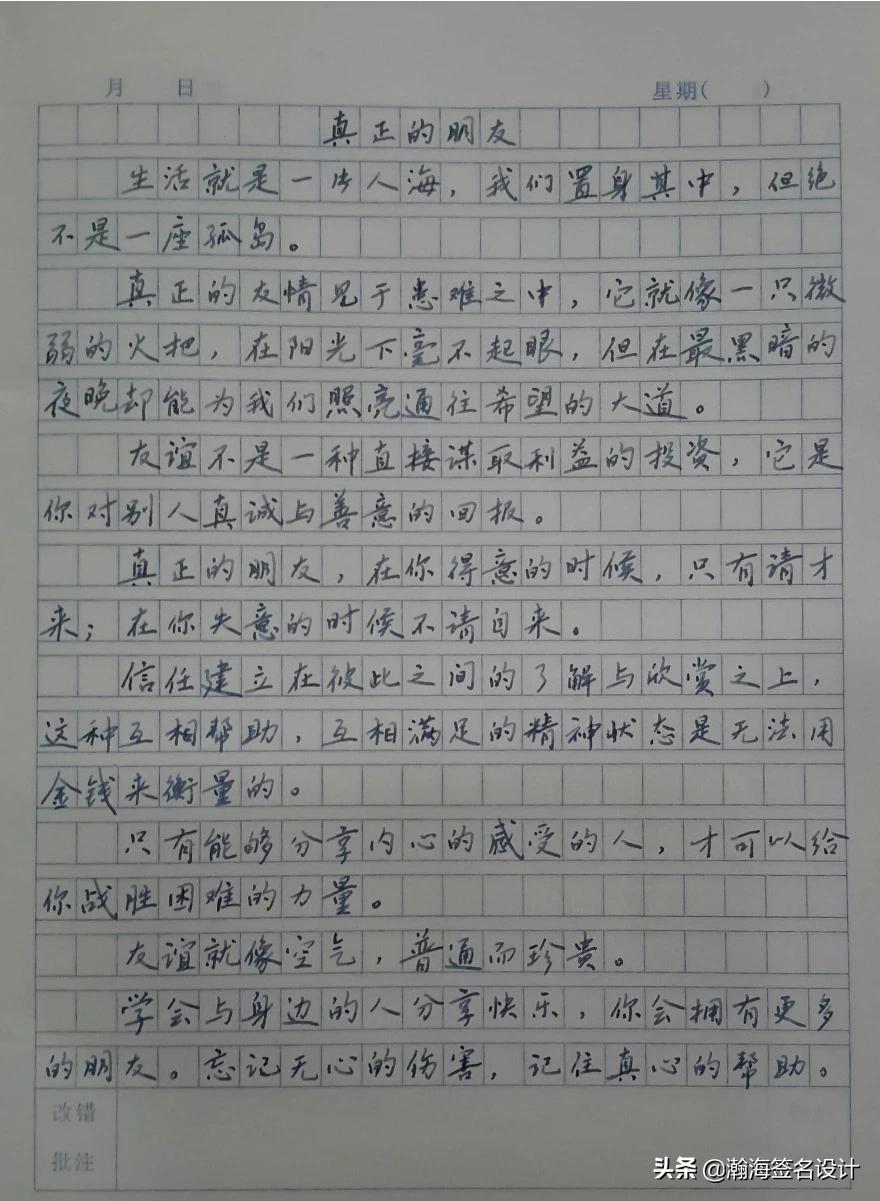 月 日 星期( )
真正的朋友
生活就是一片人海，我们置身其中，但绝
不是一座孤岛。
真正的友情见于患难之中，它就像一只微
弱的火把，在阳光下毫不起眼，但在最黑暗的
夜晚却能为我们照亮通往希望的大道。
友谊不是一种直接谋取利益的投资，它是
你对别人真诚与善意的回报。
真正的朋友，在你得意的时候，只有请才
来；在你失意的时候不请自来。
信任建立在彼此之间的了解与欣赏之上，
这种互相帮助，互相满足的精神状态是无法用
金钱来衡量的。
只有能够分享内心的感受的人，才可以给
你战胜困难的力量。
友谊就像空气，普通而珍贵。
学会与身边的人分享快乐，你会拥有更多
的朋友。忘记无心的伤害，记住真心的帮助。
改错
批注
头条 @瀚海签名设计